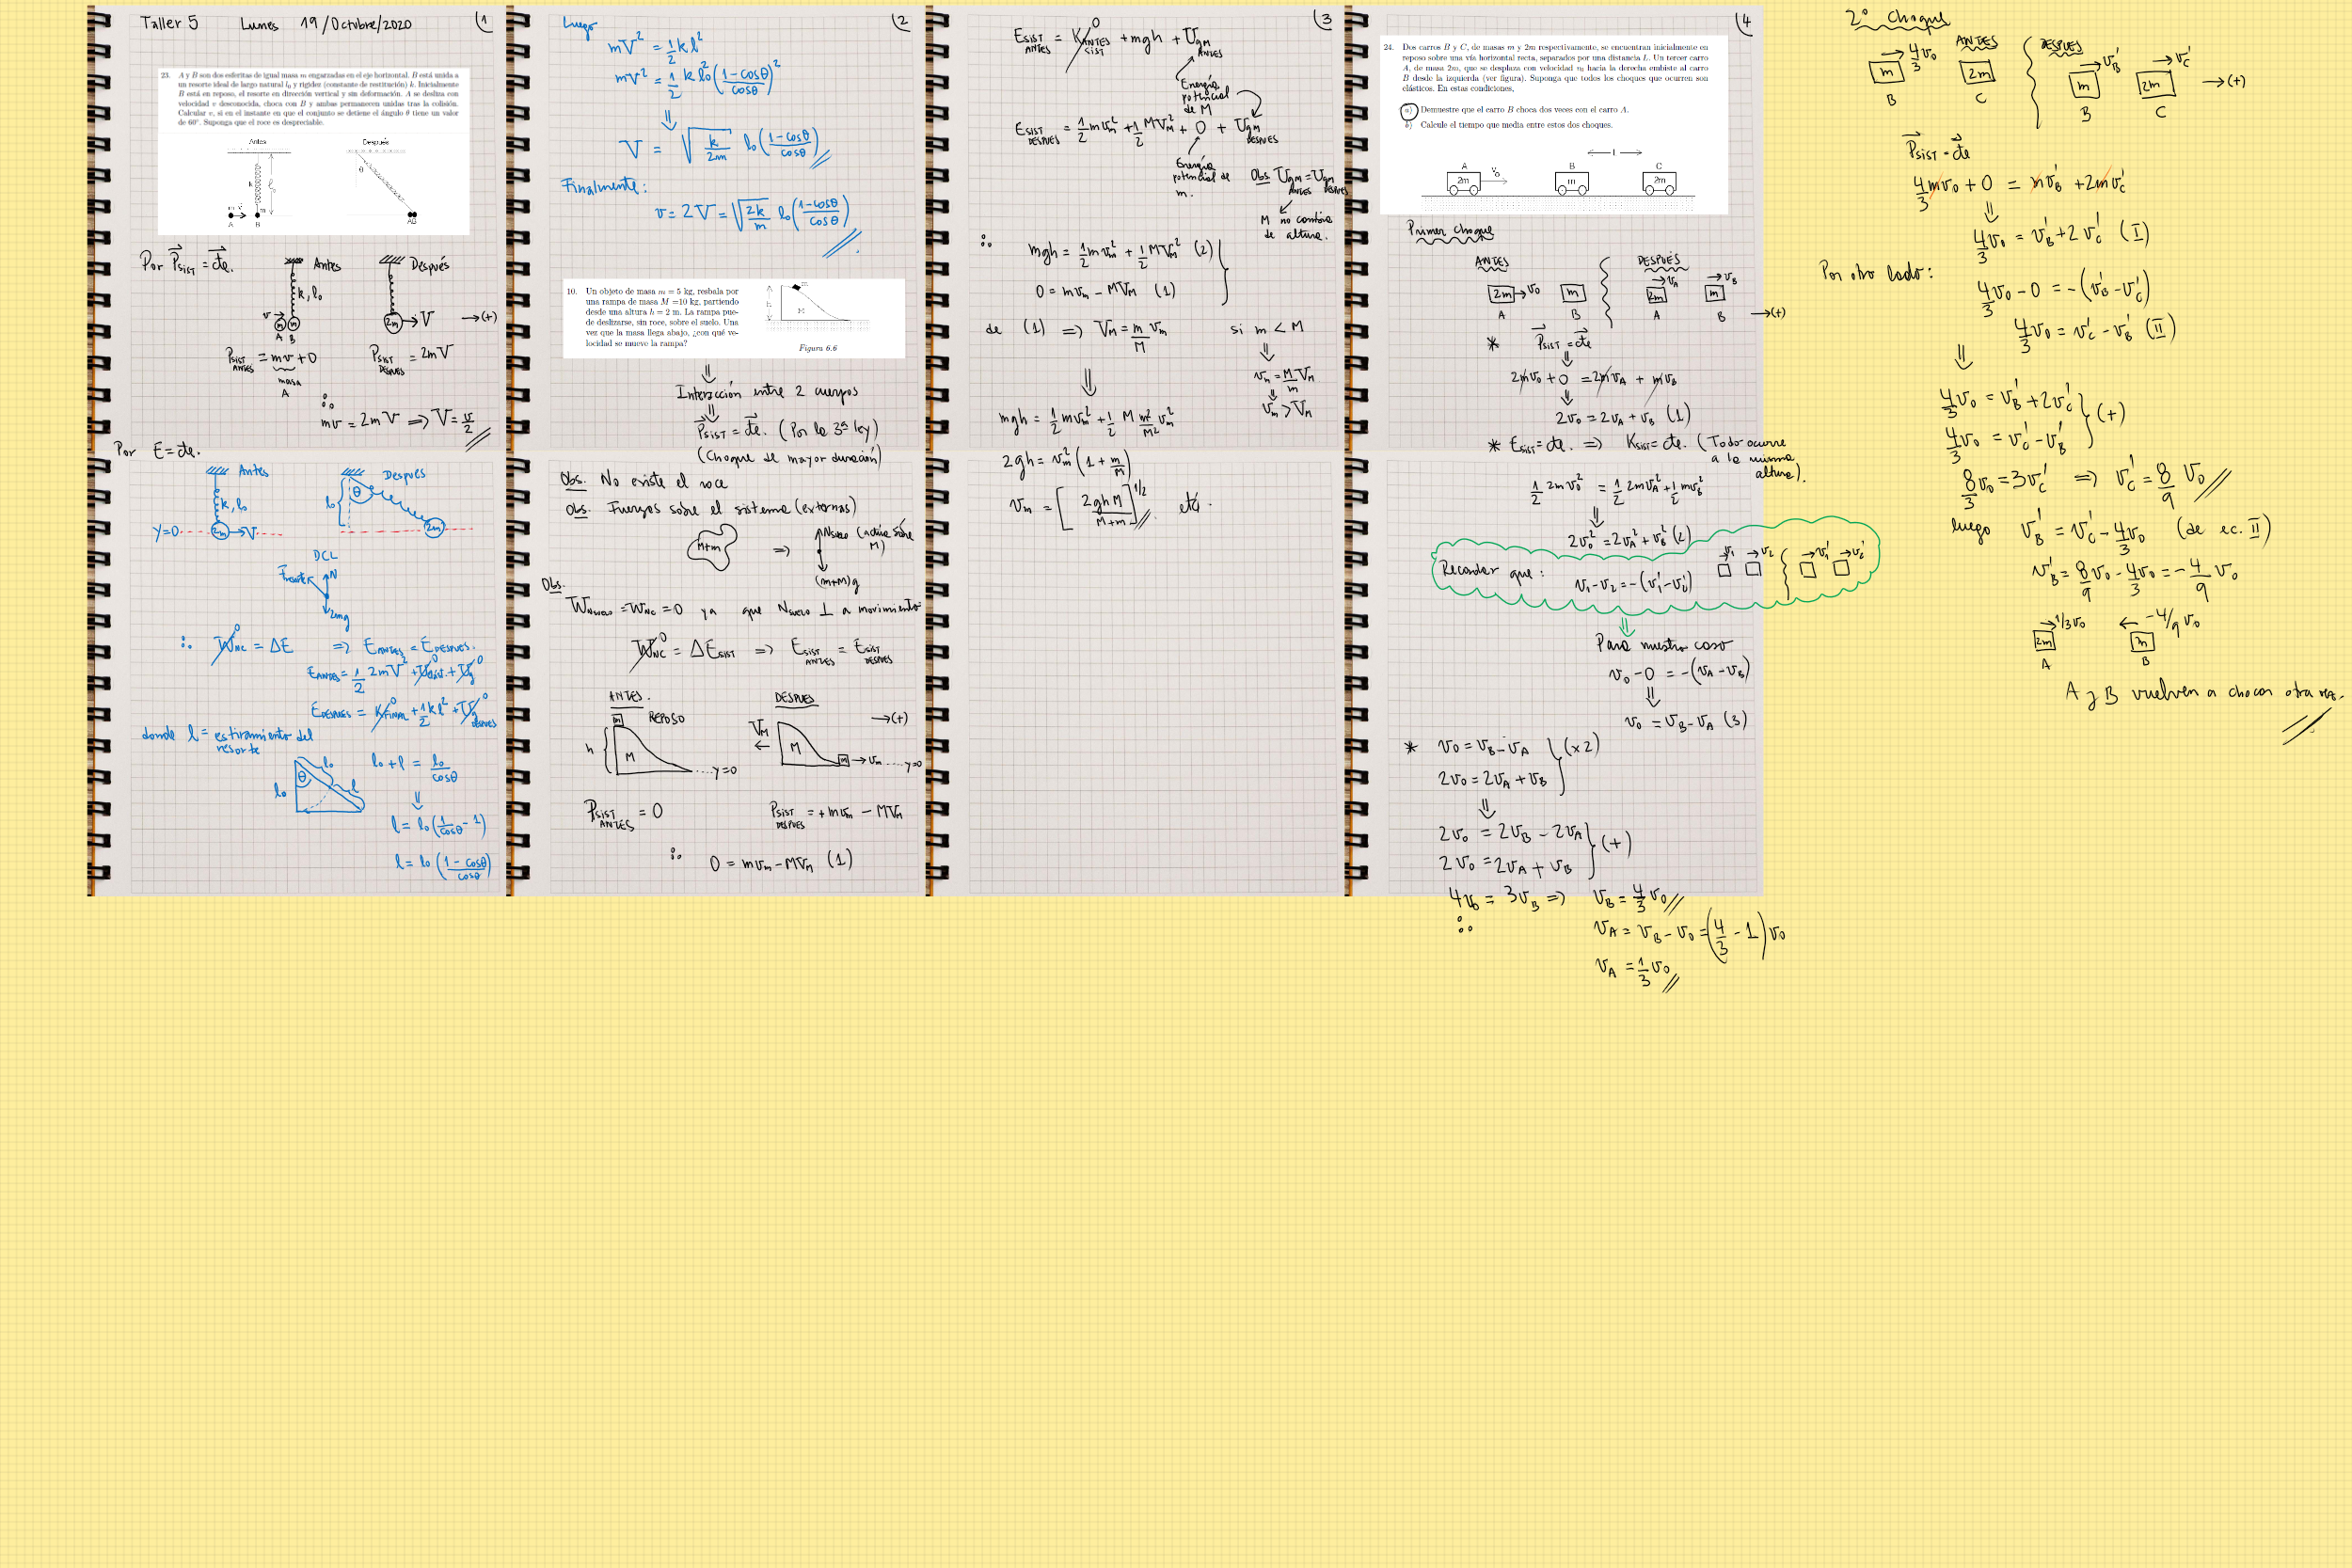 Taller 5 Lunes 19/Octubre/2020 (1
23. A y B son dos esferitas de igual masa m engarzadas en el eje horizontal. B está unida a
un resorte ideal de largo natural l₀ y rigidez (constante de restitución) k. Inicialmente
B está en reposo, el resorte en dirección vertical y sin deformación. A se desliza con
velocidad v desconocida, choca con B y ambas permanecen unidas tras la colisión.
Calcular v, si en el instante en que el conjunto se detiene el ángulo θ tiene un valor
de 60°. Suponga que el roce es despreciable.
Antes Después
θ
k
m v m
A B AB
Por P⃗sist = cte. Antes Después
k, l₀
v m m 2m → V → (+)
A B
Psist ANTES = mv + 0 Psist DESPUES = 2mV
masa A
∴ mv = 2mV ⇒ V = v/2
Por E = cte.
Antes Después
k, l₀ l₀ θ
y=0 2m → V 2m
DCL
Fresorte N
2mg
∴ W_NC = ΔE ⇒ E_ANTES = E_DESPUES.
E_ANTES = 1/2 2mV² + U_elást. + U_g 0
E_DESPUES = K_FINAL 0 + 1/2 kl² + U_g DESPUES 0
donde l = estiramiento del
resorte
l₀ θ l₀ l
l₀ + l = l₀/cosθ
⇓
l = l₀(1/cosθ - 1)
l = l₀(1 - cosθ/cosθ)
Luego (2
mV² = 1/2 kl²
mV² = 1/2 k l₀² (1-cosθ/cosθ)²
⇓
V = √(k/2m) l₀ (1-cosθ/cosθ)
Finalmente:
v = 2V = √(2k/m) l₀ (1-cosθ/cosθ)
10. Un objeto de masa m = 5 kg, resbala por
una rampa de masa M =10 kg, partiendo
desde una altura h = 2 m. La rampa pue-
de deslizarse, sin roce, sobre el suelo. Una
vez que la masa llega abajo, ¿con qué ve-
locidad se mueve la rampa?
m
h M
Figura 6.6
⇓
Interacción entre 2 cuerpos
⇓
P⃗sist = cte. (Por la 3ª ley)
(Choque de mayor duración)
Obs. No existe el roce
Obs. Fuerzas sobre el sistema (externas)
M+m ⇒ Nsuelo (actúa sobre M)
(m+M)g
Obs.
W_Nsuelo = W_NC = 0 ya que Nsuelo ⊥ a movimiento
W_NC 0 = ΔE_SIST ⇒ E_SIST ANTES = E_SIST DESPUES
ANTES. DESPUES
m REPOSO V_M → (+)
h M y=0 ← M m → v_m y=0
P_SIST ANTES = 0 P_SIST DESPUES = +mv_m - MV_M
∴ 0 = mv_m - MV_M (1)
(3
E_SIST ANTES = K_ANTES SIST 0 + mgh + U_gM ANTES
Energía
potencial
de M
E_SIST DESPUES = 1/2 mv_m² + 1/2 MV_M² + 0 + U_gM DESPUES
Energía
potencial de
m.
Obs U_gM ANTES = U_gM DESPUES
M no cambia
de altura.
∴ mgh = 1/2 mv_m² + 1/2 MV_M² (2)
0 = mv_m - MV_M (1)
de (1) ⇒ V_M = m/M v_m si m < M
⇓
v_m = M/m V_M
⇓
v_m > V_M
⇓
mgh = 1/2 mv_m² + 1/2 M m²/M² v_m²
2gh = v_m² (1 + m/M)
v_m = [2ghM/M+m]^1/2 etc.
(4
24. Dos carros B y C, de masas m y 2m respectivamente, se encuentran inicialmente en
reposo sobre una vía horizontal recta, separados por una distancia L. Un tercer carro
A, de masa 2m, que se desplaza con velocidad v₀ hacia la derecha embiste al carro
B desde la izquierda (ver figura). Suponga que todos los choques que ocurren son
elásticos. En estas condiciones,
a) Demuestre que el carro B choca dos veces con el carro A.
b) Calcule el tiempo que media entre estos dos choques.
A B C
2m v₀ m 2m
Primer choque
ANTES DESPUÉS
2m → v₀ m → v_A 2m → v_B m
A B A B → (+)
* P⃗SIST = cte
⇓
2mv₀ + 0 = 2mv_A + mv_B
⇓
2v₀ = 2v_A + v_B (1)
* E_SIST = cte. ⇒ K_SIST = cte. (Todo ocurre
a la misma
altura).
1/2 2mv₀² = 1/2 2mv_A² + 1/2 mv_B²
⇓
2v₀² = 2v_A² + v_B² (2)
Recordar que: v₁ - v₂ = -(v₁' - v₂') → v₁ → v₂ → v₁' → v₂'
⇓
Para nuestro caso
v₀ - 0 = -(v_A - v_B)
⇓
v₀ = v_B - v_A (3)
* v₀ = v_B - v_A (x2)
2v₀ = 2v_A + v_B
⇓
2v₀ = 2v_B - 2v_A (+)
2v₀ = 2v_A + v_B
4v₀ = 3v_B ⇒ v_B = 4/3 v₀
∴ v_A = v_B - v₀ = (4/3 - 1)v₀
v_A = 1/3 v₀
2° choque
ANTES DESPUES
→ 4/3 v₀ → v_B' → v_C'
m 2m m 2m → (+)
B C B C
P⃗SIST = cte
4/3 mv₀ + 0 = mv_B' + 2mv_C'
⇓
4/3 v₀ = v_B' + 2v_C' (I)
Por otro lado:
4/3 v₀ - 0 = -(v_B' - v_C')
4/3 v₀ = v_C' - v_B' (II)
⇓
4/3 v₀ = v_B' + 2v_C' (+)
4/3 v₀ = v_C' - v_B'
8/3 v₀ = 3v_C' ⇒ v_C' = 8/9 v₀
luego v_B' = v_C' - 4/3 v₀ (de ec. II)
v_B' = 8/9 v₀ - 4/3 v₀ = -4/9 v₀
→ 1/3 v₀ ← -4/9 v₀
2m m
A B
A y B vuelven a chocar otra vez.